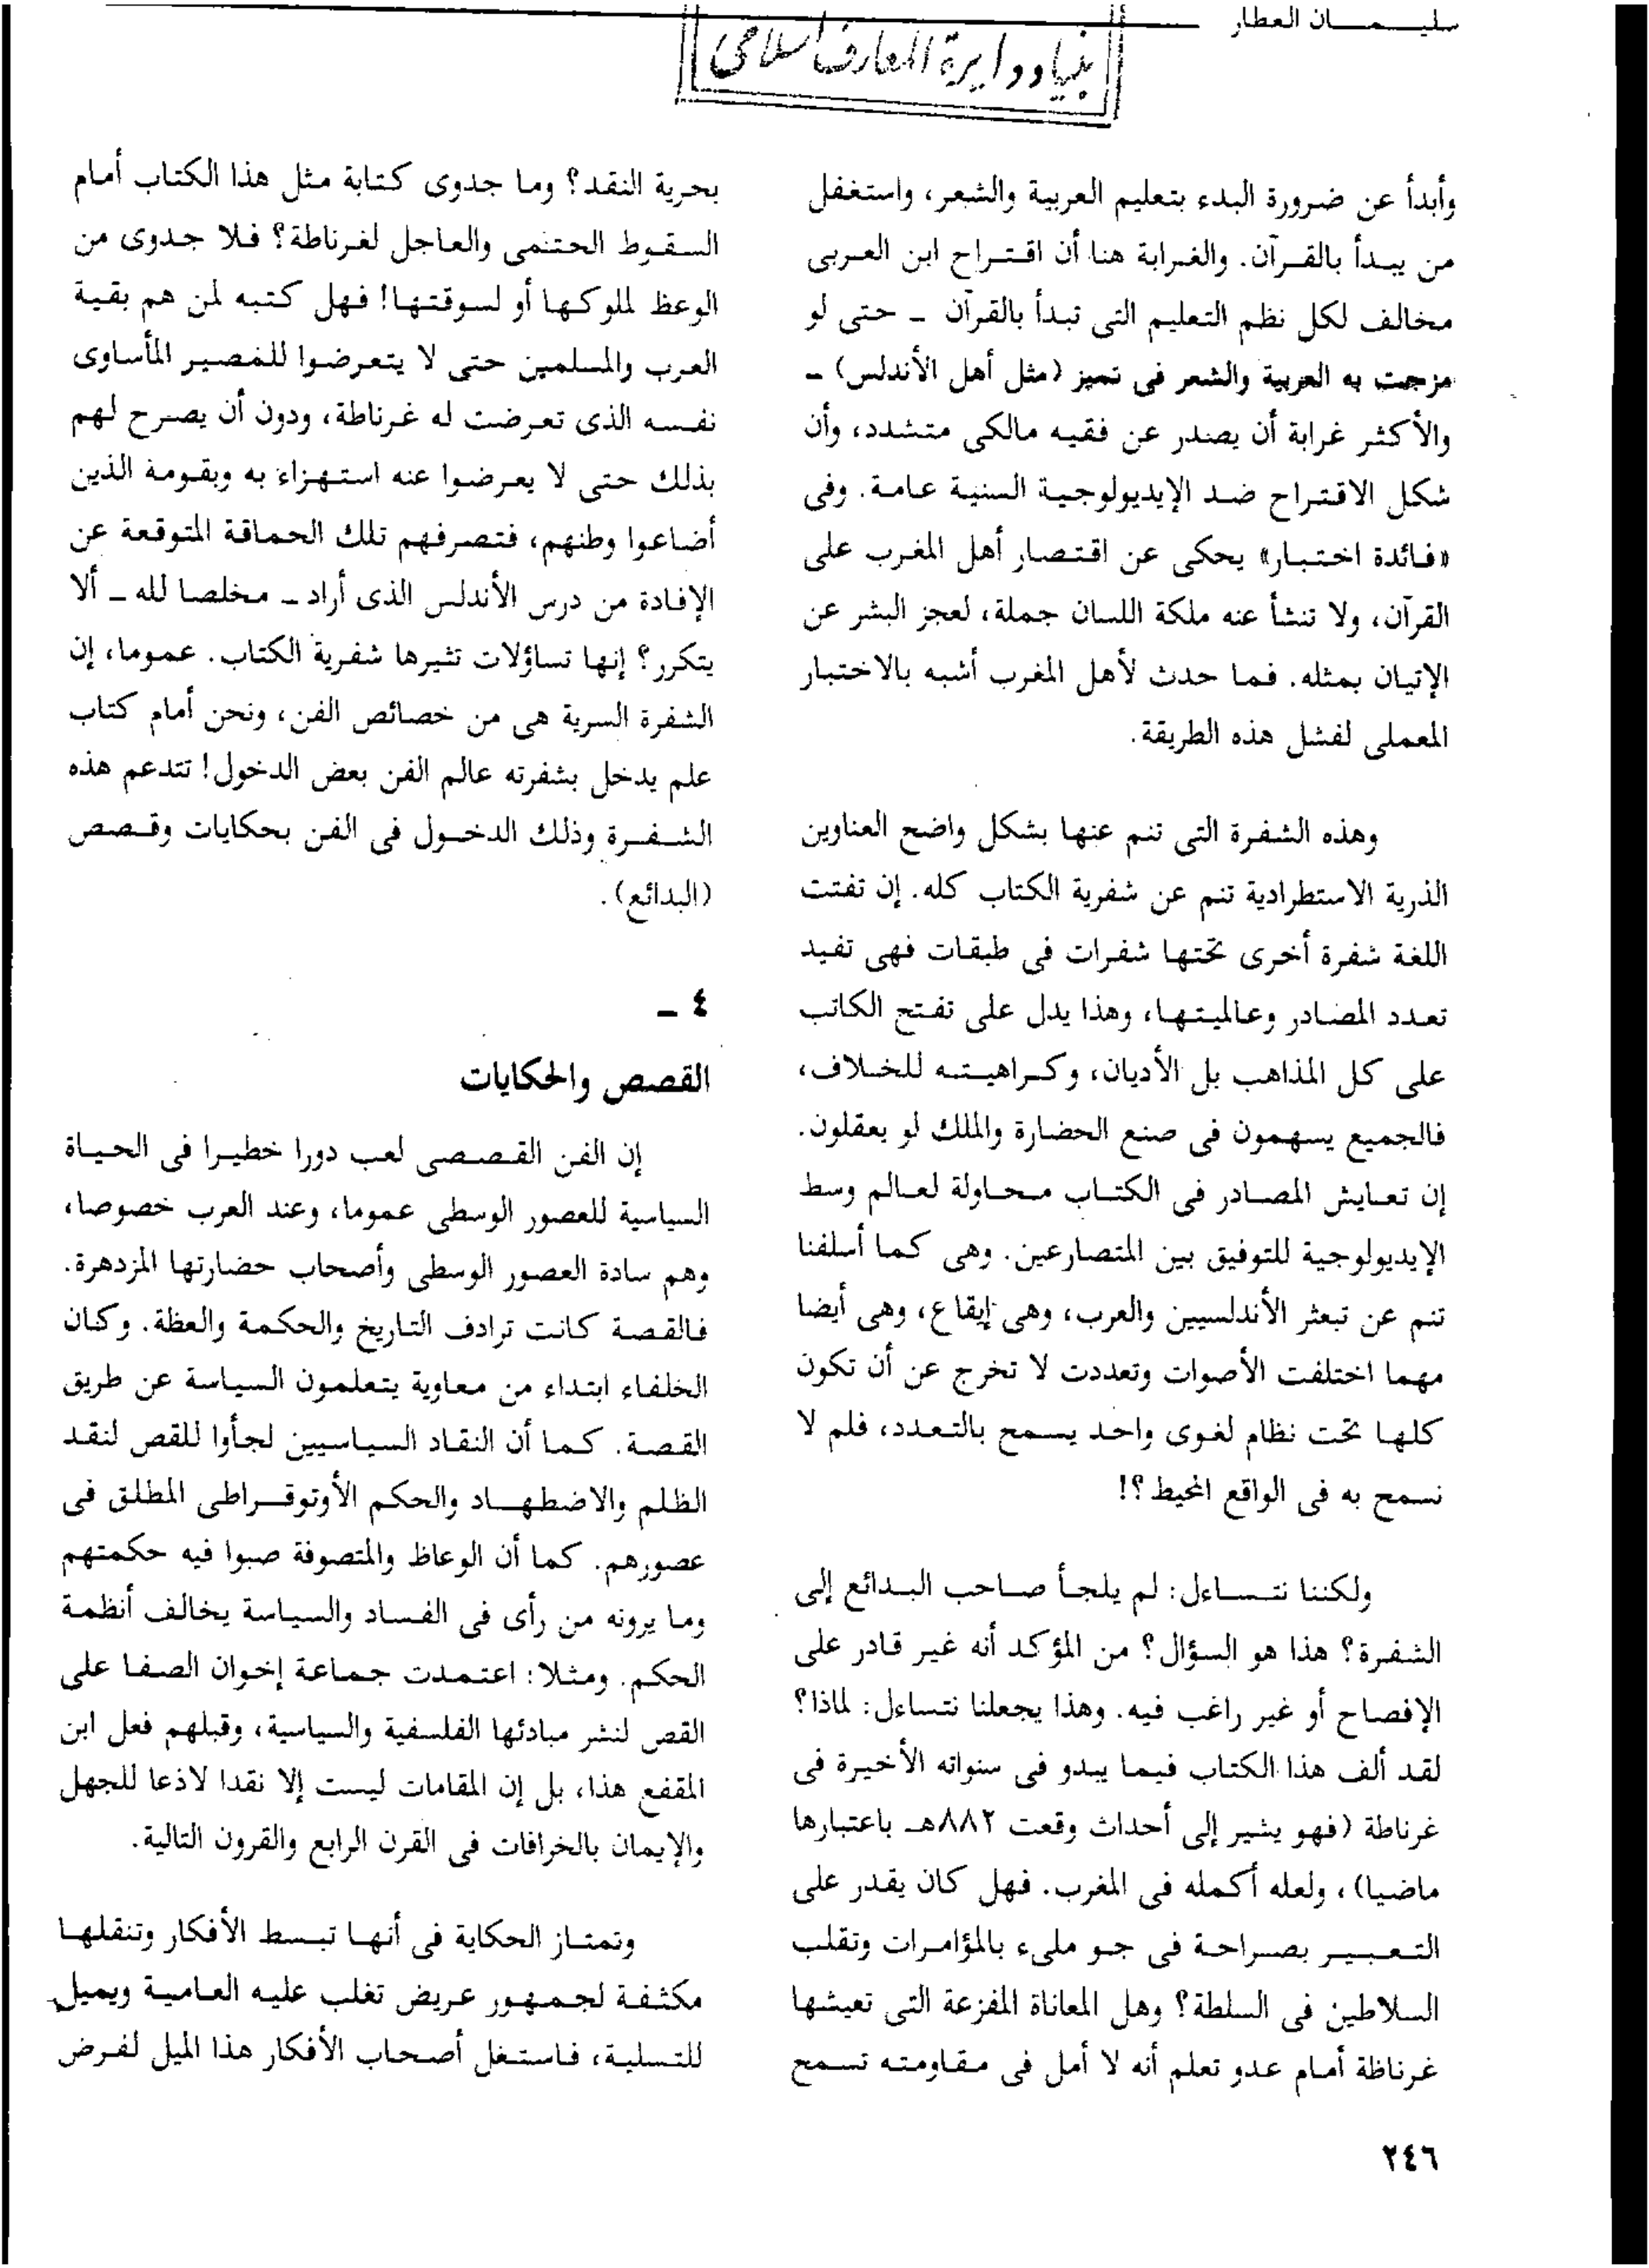 سليمان العطار
بنياد دايرة المعارف اسلامى
وأبدأ عن ضرورة البدء بتعليم العربية والشعر، واستغفل
من يبدأ بالقرآن. والغرابة هنا أن اقتراح ابن العربى
مخالف لكل نظم التعليم التى تبدأ بالقرآن - حتى لو
مزجت به العربية والشعر فى تميز (مثل أهل الأندلس) -
والأكثر غرابة أن يصدر عن فقيه مالكى متشدد، وأن
شكل الاقتراح ضد الإيديولوجية السنية عامة. وفى
«فائدة اختبار» يحكى عن اقتصار أهل المغرب على
القرآن، ولا تنشأ عنه ملكة اللسان جملة، لعجز البشر عن
الإتيان بمثله. فما حدث لأهل المغرب أشبه بالاختبار
المعملى لفشل هذه الطريقة.
وهذه الشفرة التى تنم عنها بشكل واضح العناوين
الذرية الاستطرادية تنم عن شفرية الكتاب كله. إن تفتت
اللغة شفرة أخرى تحتها شفرات فى طبقات فهى تفيد
تعدد المصادر وعالميتها، وهذا يدل على تفتح الكاتب
على كل المذاهب بل الأديان، وكراهيته للخلاف،
فالجميع يسهمون فى صنع الحضارة والملك لو يعقلون.
إن تعايش المصادر فى الكتاب محاولة لعالم وسط
الإيديولوجية للتوفيق بين المتصارعين. وهى كما أسلفنا
تنم عن تبعثر الأندلسيين والعرب، وهى إيقاع، وهى أيضا
مهما اختلفت الأصوات وتعددت لا تخرج عن أن تكون
كلها تحت نظام لغوى واحد يسمح بالتعدد، فلم لا
نسمح به فى الواقع المحيط؟!
ولكننا نتساءل: لم يلجأ صاحب البدائع إلى
الشفرة؟ هذا هو السؤال؟ من المؤكد أنه غير قادر على
الإفصاح أو غير راغب فيه. وهذا يجعلنا نتساءل: لماذا؟
لقد ألف هذا الكتاب فيما يبدو فى سنواته الأخيرة فى
غرناطة (فهو يشير إلى أحداث وقعت ٨٨٢هـ باعتبارها
ماضيا)، ولعله أكمله فى المغرب. فهل كان يقدر على
التعبير بصراحة فى جو ملىء بالمؤامرات وتقلب
السلاطين فى السلطة؟ وهل المعاناة المفزعة التى تعيشها
غرناطة أمام عدو تعلم أنه لا أمل فى مقاومته تسمح
بحرية النقد؟ وما جدوى كتابة مثل هذا الكتاب أمام
السقوط الحتمى والعاجل لغرناطة؟ فلا جدوى من
الوعظ لملوكها أو لسوقتها! فهل كتبه لمن هم بقية
العرب والمسلمين حتى لا يتعرضوا للمصير المأساوى
نفسه الذى تعرضت له غرناطة، ودون أن يصرح لهم
بذلك حتى لا يعرضوا عنه استهزاء به وبقومه الذين
أضاعوا وطنهم، فتصرفهم تلك الحماقة المتوقعة عن
الإفادة من درس الأندلس الذى أراد - مخلصا لله - ألا
يتكرر؟ إنها تساؤلات تثيرها شفرية الكتاب. عموما، إن
الشفرة السرية هى من خصائص الفن، ونحن أمام كتاب
علم يدخل بشفرته عالم الفن بعض الدخول! تتدعم هذه
الشفرة وذلك الدخول فى الفن بحكايات وقصص
(البدائع).
٤ -
القصص والحكايات
إن الفن القصصى لعب دورا خطيرا فى الحياة
السياسية للعصور الوسطى عموما، وعند العرب خصوصا،
وهم سادة العصور الوسطى وأصحاب حضارتها المزدهرة.
فالقصة كانت ترادف التاريخ والحكمة والعظة. وكان
الخلفاء ابتداء من معاوية يتعلمون السياسة عن طريق
القصة. كما أن النقاد السياسيين لجأوا للقص لنقد
الظلم والاضطهاد والحكم الأوتوقراطى المطلق فى
عصورهم. كما أن الوعاظ والمتصوفة صبوا فيه حكمتهم
وما يرونه من رأى فى الفساد والسياسة يخالف أنظمة
الحكم. ومثلا: اعتمدت جماعة إخوان الصفا على
القص لنشر مبادئها الفلسفية والسياسية، وقبلهم فعل ابن
المقفع هذا، بل إن المقامات ليست إلا نقدا لاذعا للجهل
والإيمان بالخرافات فى القرن الرابع والقرون التالية.
وتمتاز الحكاية فى أنها تبسط الأفكار وتنقلها
مكثفة لجمهور عريض تغلب عليه العامية ويميل
للتسلية، فاستغل أصحاب الأفكار هذا الميل لفرض
٢٤٦